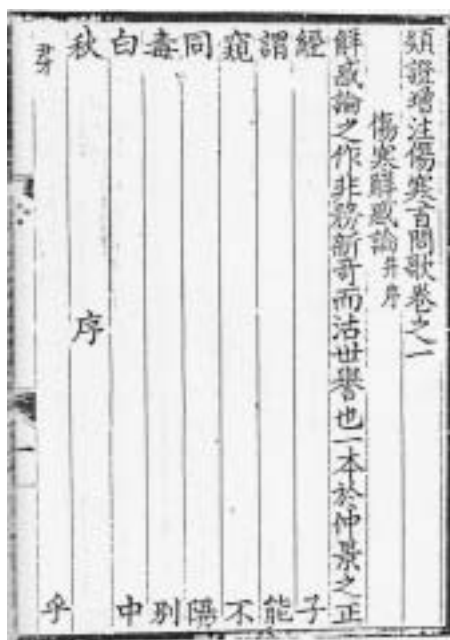 類證增注傷寒百問歌卷之一
傷寒解惑論并序
解惑論之作非務新奇而沽世譽也一本於仲景之正
經 子
謂 能
窺 不
同 陽
毒 別
白 中
秋 序
乎
一